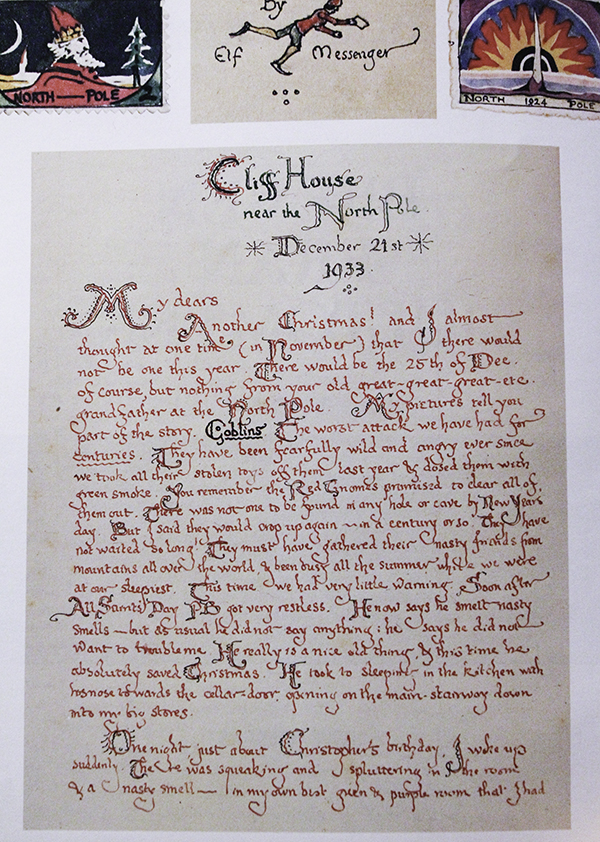 NORTH — POLE 2
By
Elf Messenger
NORTH 1924 POLE
Cliff House
near the North Pole
December 21st
1933.
My dears
Another Christmas! and I almost
thought at one time (in November) that there would
not be one this year. There would be the 25th of Dec.
of course, but nothing from your old great-great-great-etc.
grandfather at the North Pole. My pictures tell you
part of the story. Goblins. The worst attack we have had for
centuries. They have been fearfully wild and angry ever since
we took all their stolen toys off them last year & dosed them with
green smoke. You remember the Red Gnomes promised to clear all of
them out. There was not one to be found in any hole or cave by New Years
day. But I said they would crop up again — in a century or so. They have
not waited so long! They must have gathered their nasty friends from
mountains all over the world, & been busy all the summer while we were
at our sleepiest. This time we had very little warning. Soon after
All Saints' Day PB got very restless. He now says he smelt nasty
smells — but as usual he did not say anything: he says he did not
want to trouble me. He really is a nice old thing, & this time he
absolutely saved Christmas. He took to sleeping in the kitchen with
his nose towards the cellar-door, opening on the main-stairway down
into my big stores.
One night just about Christopher's birthday, I woke up
suddenly. There was squeaking and spluttering in the room
& a nasty smell — in my own best green & purple room that I had